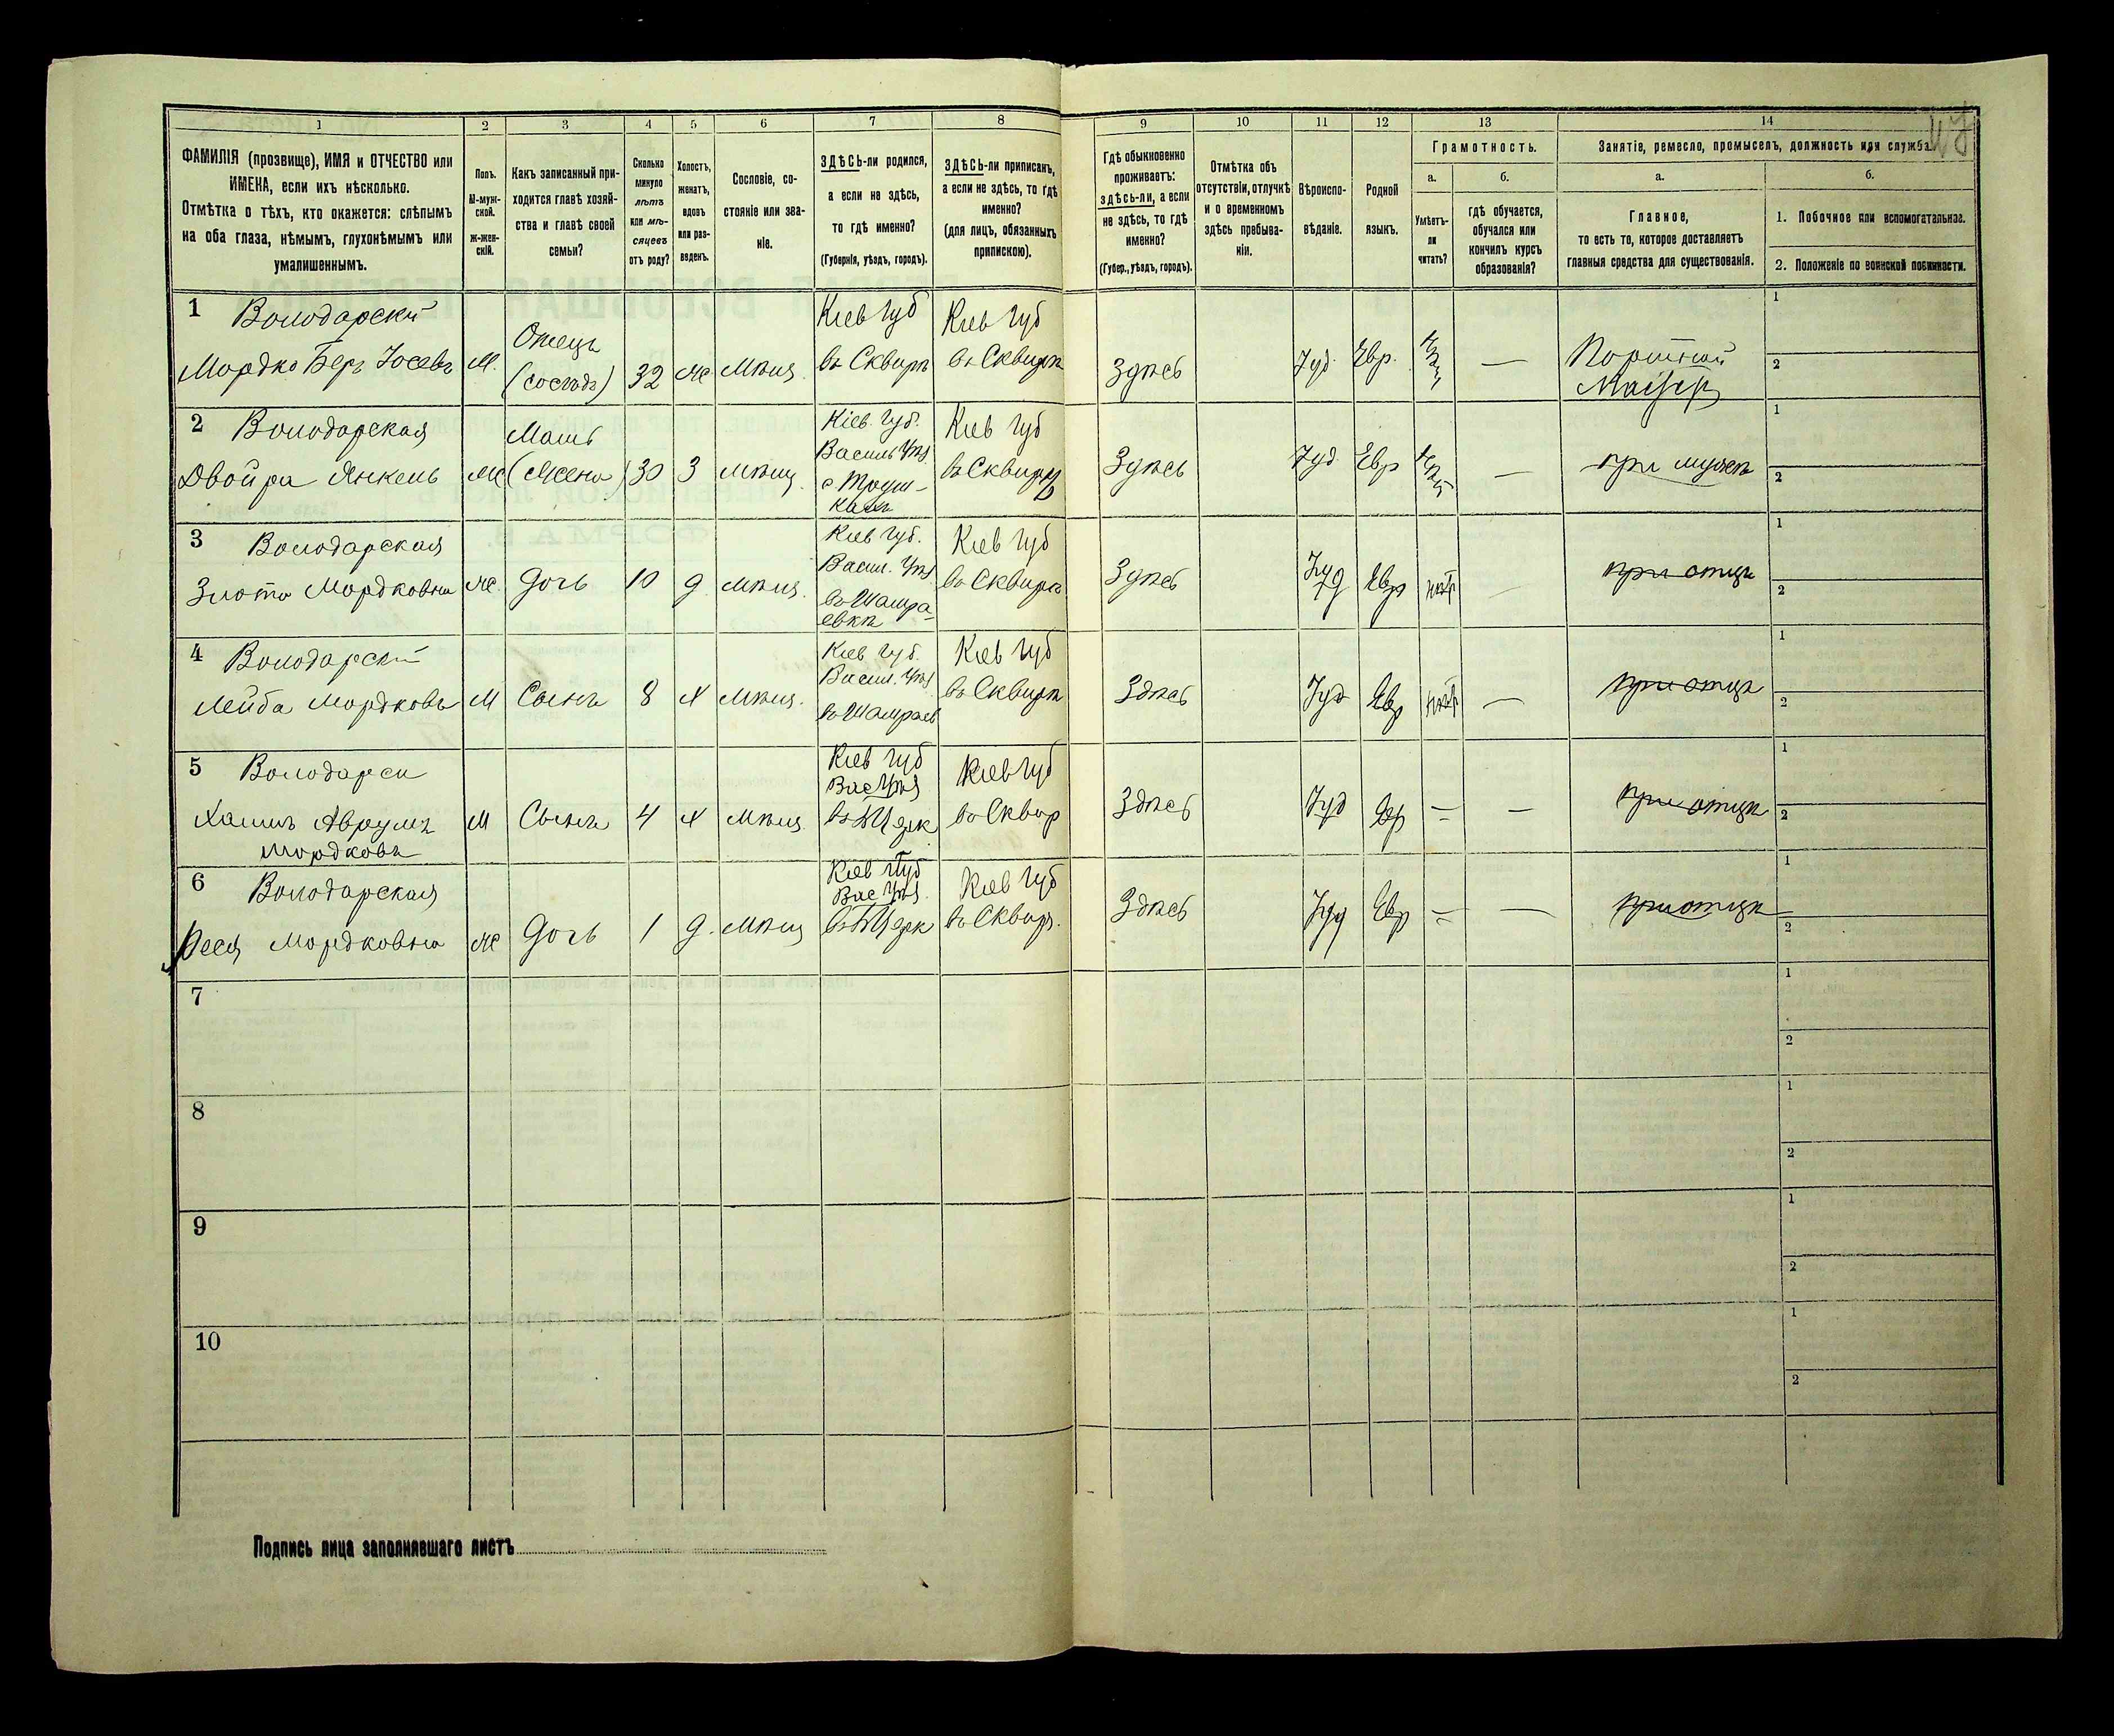 1 2 3 4 5 6 7 8 9 10 11 12 13 14
ФАМИЛІЯ (прозвище), ИМЯ и ОТЧЕСТВО или
ИМЕНА, если ихъ нѣсколько.
Отмѣтка о тѣхъ, кто окажется: слѣпымъ
на оба глаза, нѣмымъ, глухонѣмымъ или
умалишеннымъ.
Полъ.
М-муж-
ской.
Ж-жен-
скій.
Какъ записанный при-
ходится главѣ хозяй-
ства и главѣ своей
семьи?
Сколько
минуло
лѣтъ
или мѣ-
сяцевъ
отъ роду?
Холостъ,
женатъ,
вдовъ
или раз-
веденъ.
Сословіе, со-
стояніе или зва-
ніе.
ЗДѢСЬ-ли родился,
а если не здѣсь,
то гдѣ именно?
(Губернія, уѣздъ, городъ).
ЗДѢСЬ-ли приписанъ,
а если не здѣсь, то гдѣ
именно?
(для лицъ, обязанныхъ
припискою).
Гдѣ обыкновенно
проживаетъ:
здѣсь-ли, а если
не здѣсь, то гдѣ
именно?
(Губер., уѣздъ, городъ).
Отмѣтка объ
отсутствіи, отлучкѣ
и о временномъ
здѣсь пребыва-
ніи.
Вѣроиспо-
вѣданіе.
Родной
языкъ.
Грамотность.
а.
Умѣетъ-
ли
читать?
б.
гдѣ обучается,
обучался или
кончилъ курсъ
образованія?
Занятіе, ремесло, промыселъ, должность или служба.
а.
Главное,
то есть то, которое доставляетъ
главныя средства для существованія.
б.
1. Побочное или вспомогательное.
2. Положеніе по воинской повинности.
1 Володарскій
Мордко Беръ Іосевъ
М.
Отецъ
(сосѣдъ)
32
Ж
Мѣщ.
Кіев Губ
въ Сквирѣ
Кіев Губ
въ Сквирѣ
Здѣсь
Іуд.
Евр.
—
Портной
1
2
2 Володарская
Двойра Янкель
Ж
Мать
(Жена)
30
З
мѣщ.
Кіев. Губ.
Василь Уѣз
Кіев Губ
въ Сквирѣ
Здѣсь
Іуд
Евр
—
при мужѣ
1
2
3 Володарская
Злота Мордковна
Ж.
Дочь
10
д
мѣщ.
Кіев Губ.
Васил. Уѣз
въ Шамра-
евкѣ
Кіев Губ
въ Сквирѣ
Здѣсь
Іуд
Евр
—
при отцѣ
1
2
4 Володарскій
Лейба Мордковъ
М
Сынъ
8
Х
Мѣщ.
Кіев Губ.
Васил. Уѣз
въ Шамраев
Кіев Губ
въ Сквирѣ
Здѣсь
Іуд
Евр
—
при отцѣ
1
2
5 Володарск
Хаимъ Аврумъ
Мордковъ
М
Сынъ
4
Х
Мѣщ
Кіев Губ
Вас Уѣз
въ Б Церк
Кіев Губ
въ Сквир
Здѣсь
Іуд
Евр
—
—
при отцѣ
1
2
6 Володарская
Рейзя Мордковна
Ж
Дочь
1
д.
Мѣщ
Кіев Губ
Вас Уѣз.
въ Б Церк
Кіев Губ
въ Сквир.
Здѣсь
Іуд
Евр
—
—
при отцѣ
1
2
7
1
2
8
1
2
9
1
2
10
1
2
Подпись лица заполнявшаго листъ